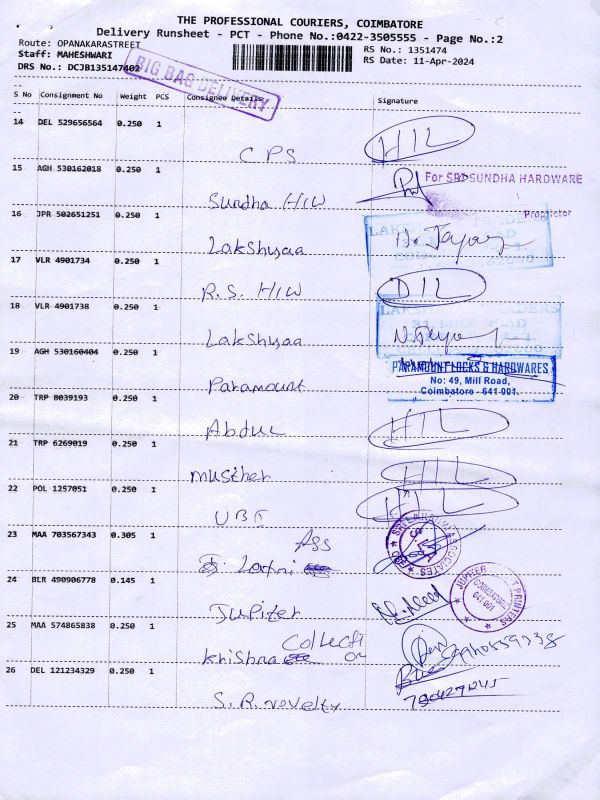 THE PROFESSIONAL COURIERS, COIMBATORE
Delivery Runsheet - PCT - Phone No.:0422-3505555 - Page No.:2
Route: OPANAKARASTREET
RS No.: 1351474
Staff: MAHESHWARI
RS Date: 11-Apr-2024
DRS No.: DCJB135147402
BIG BAG DELIVERY
S No Consignment No Weight PCS Consignee Details Signature
14 DEL 529656564 0.250 1
CPS HIL
15 AGH 530162018 0.250 1
For SRI SUNDHA HARDWARE
Proprietor
Sundha H/W
16 JPR 502651251 0.250 1
Lakshyaa
17 VLR 4901734 0.250 1
R.S. H/W DIL
18 VLR 4901738 0.250 1
Lakshyaa
19 AGH 530160404 0.250 1
PARAMOUNT LOCKS & HARDWARES
No: 49, Mill Road,
Coimbatore - 641 001.
Paramount
20 TRP 8039193 0.250 1
Abdul HIL
21 TRP 6269019 0.250 1
HIL
22 POL 1257051 0.250 1
UBI HIL
23 MAA 703567343 0.305 1
Ass
24 BLR 490906778 0.145 1
JUPITER PRINTERS
COIMBATORE
641 001
Jupiter
25 MAA 574865838 0.250 1
Krishna Collection
26 DEL 121234329 0.250 1
S.R. novelty